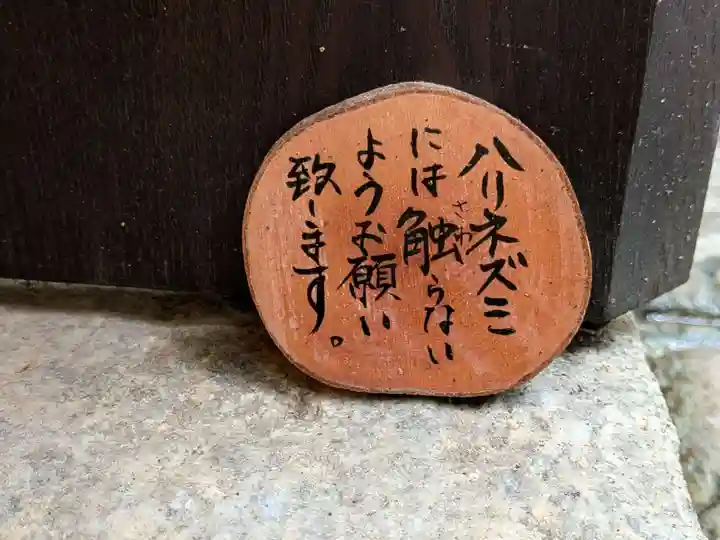 ハリネズミ
には触らない
ようお願い
致します。